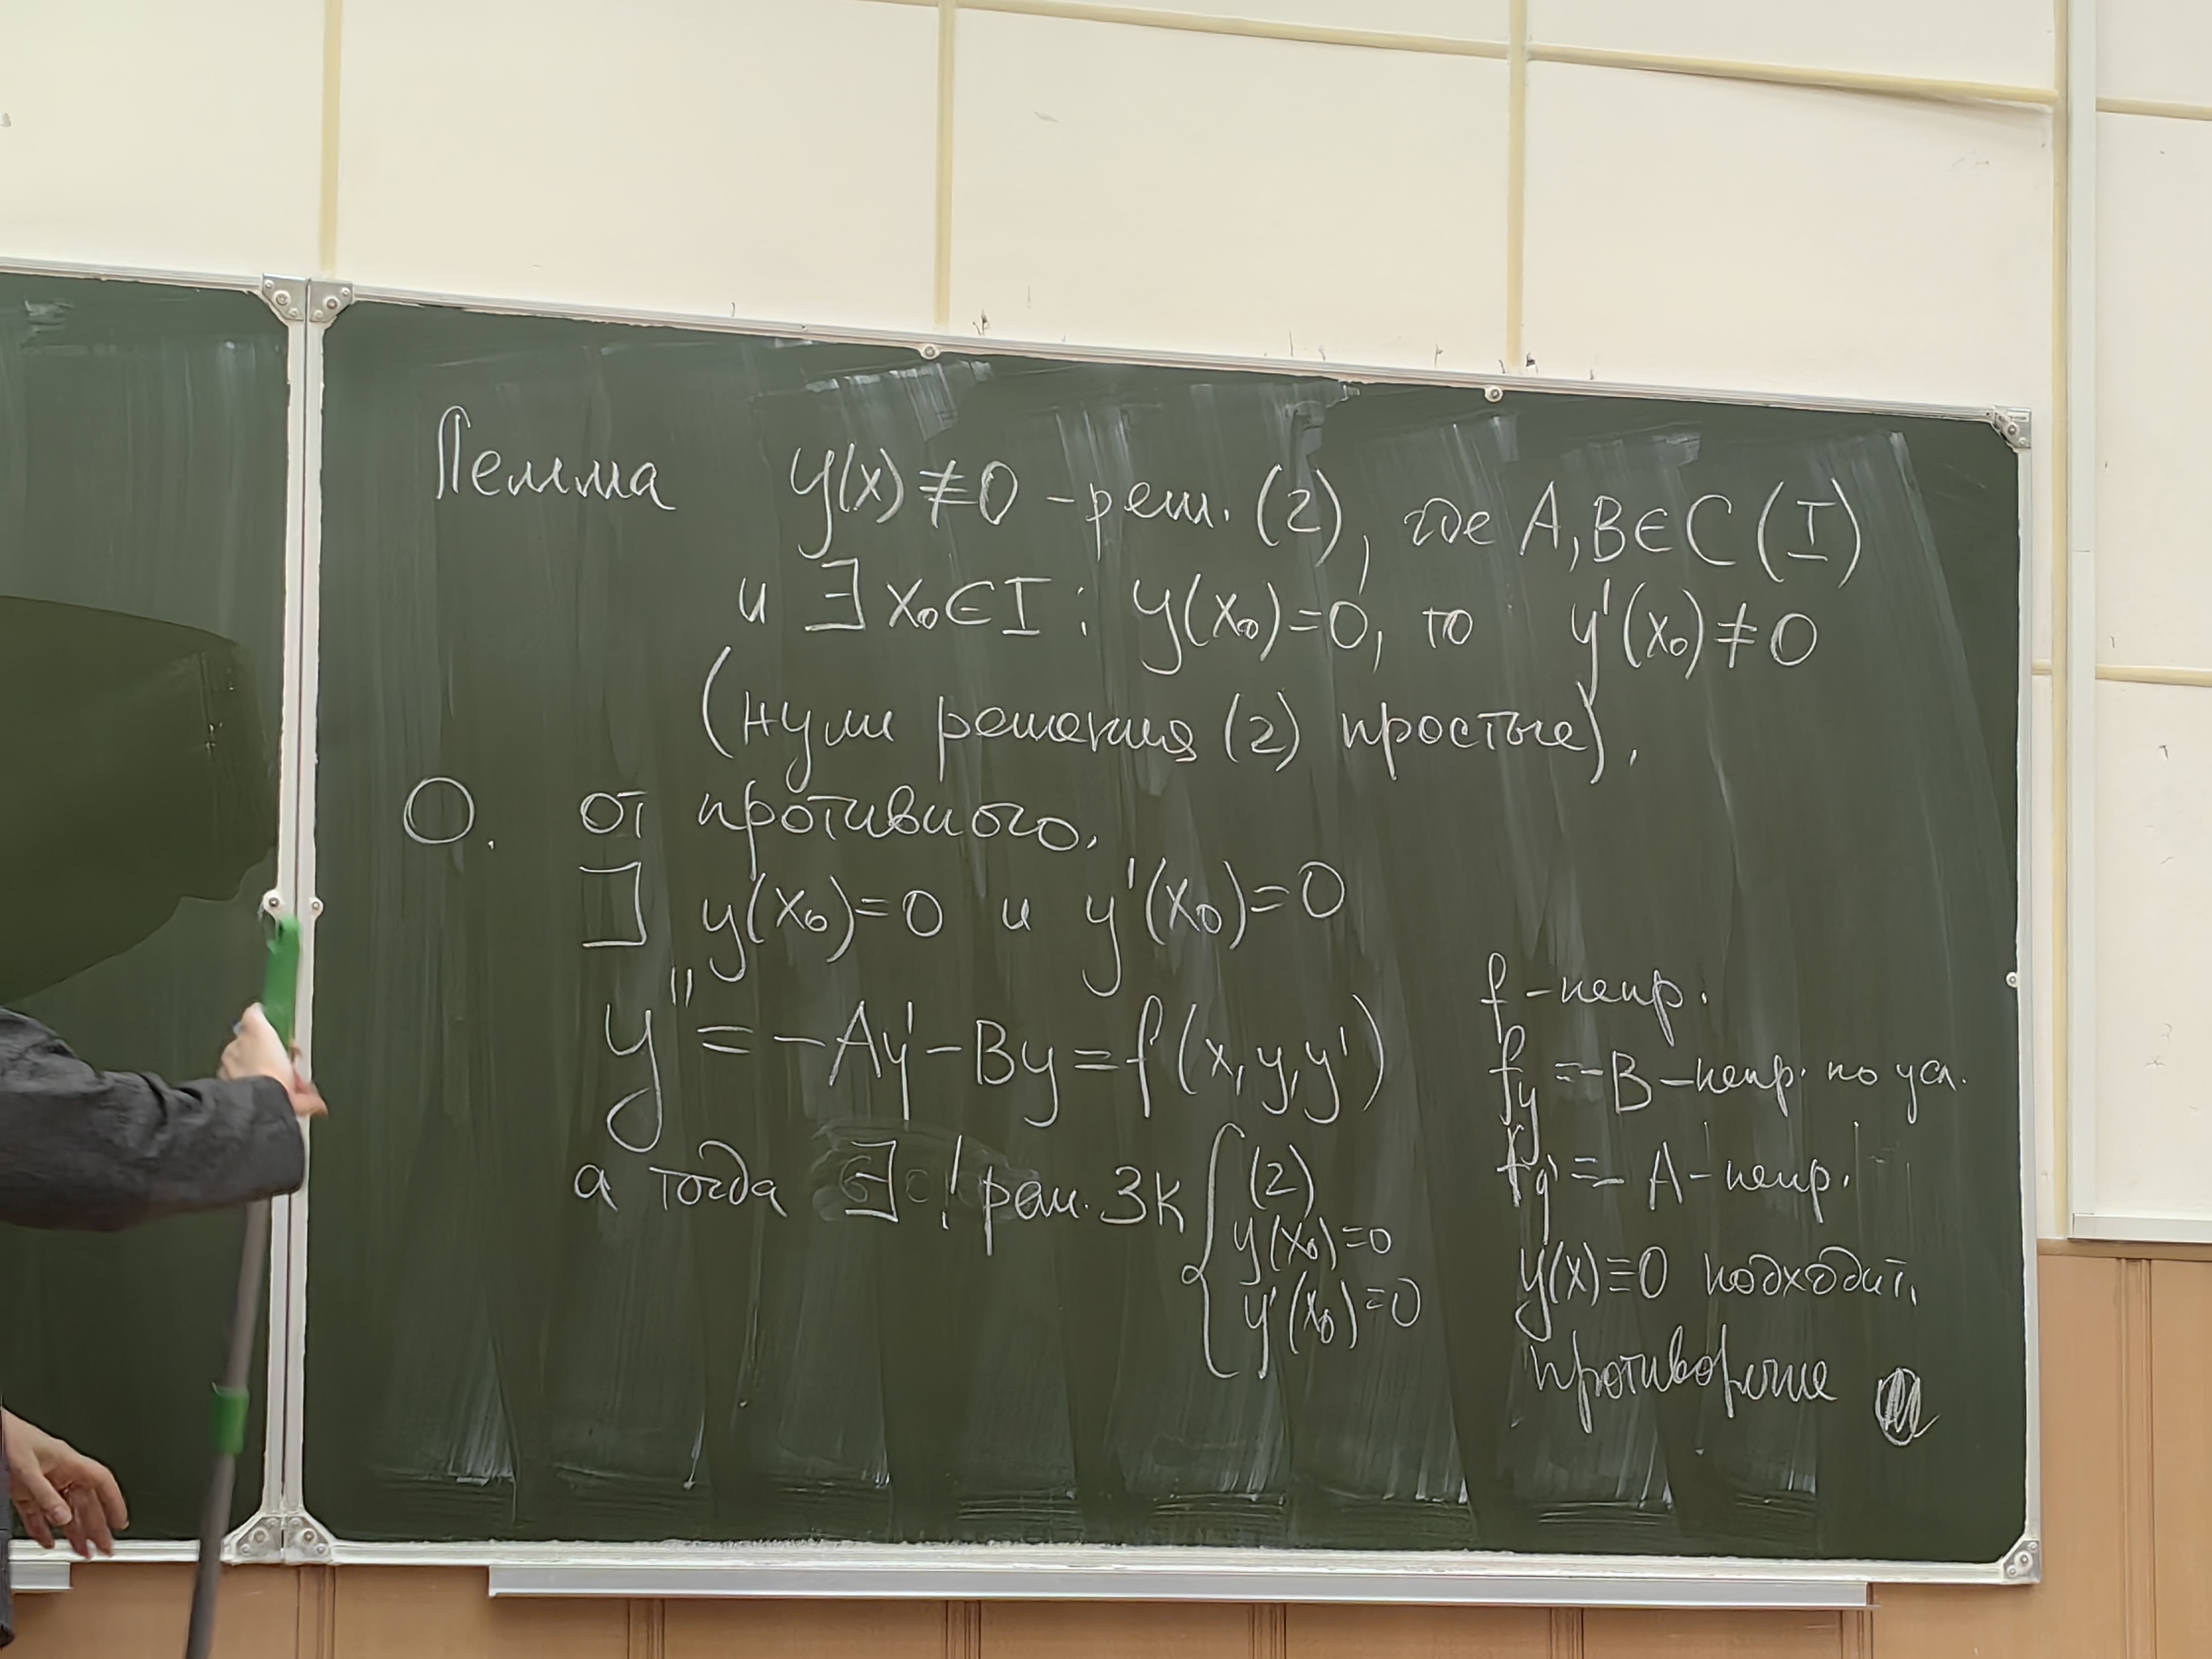 Лемма y(x) ≢ 0 - реш. (2), где A, B ∈ C (I)
и ∃ x₀ ∈ I : y(x₀) = 0, то y'(x₀) ≠ 0
(нули решения (2) простые).
О. от противного.
∃ y(x₀) = 0 и y'(x₀) = 0
y'' = -Ay' - By = f(x, y, y')
а тогда ∃! реш. ЗК { (2)
y(x₀) = 0
y'(x₀) = 0
f - непр.
f_y = -B - непр. по усл.
f_y' = -A - непр.
y(x) ≡ 0 подходит.
противоречие